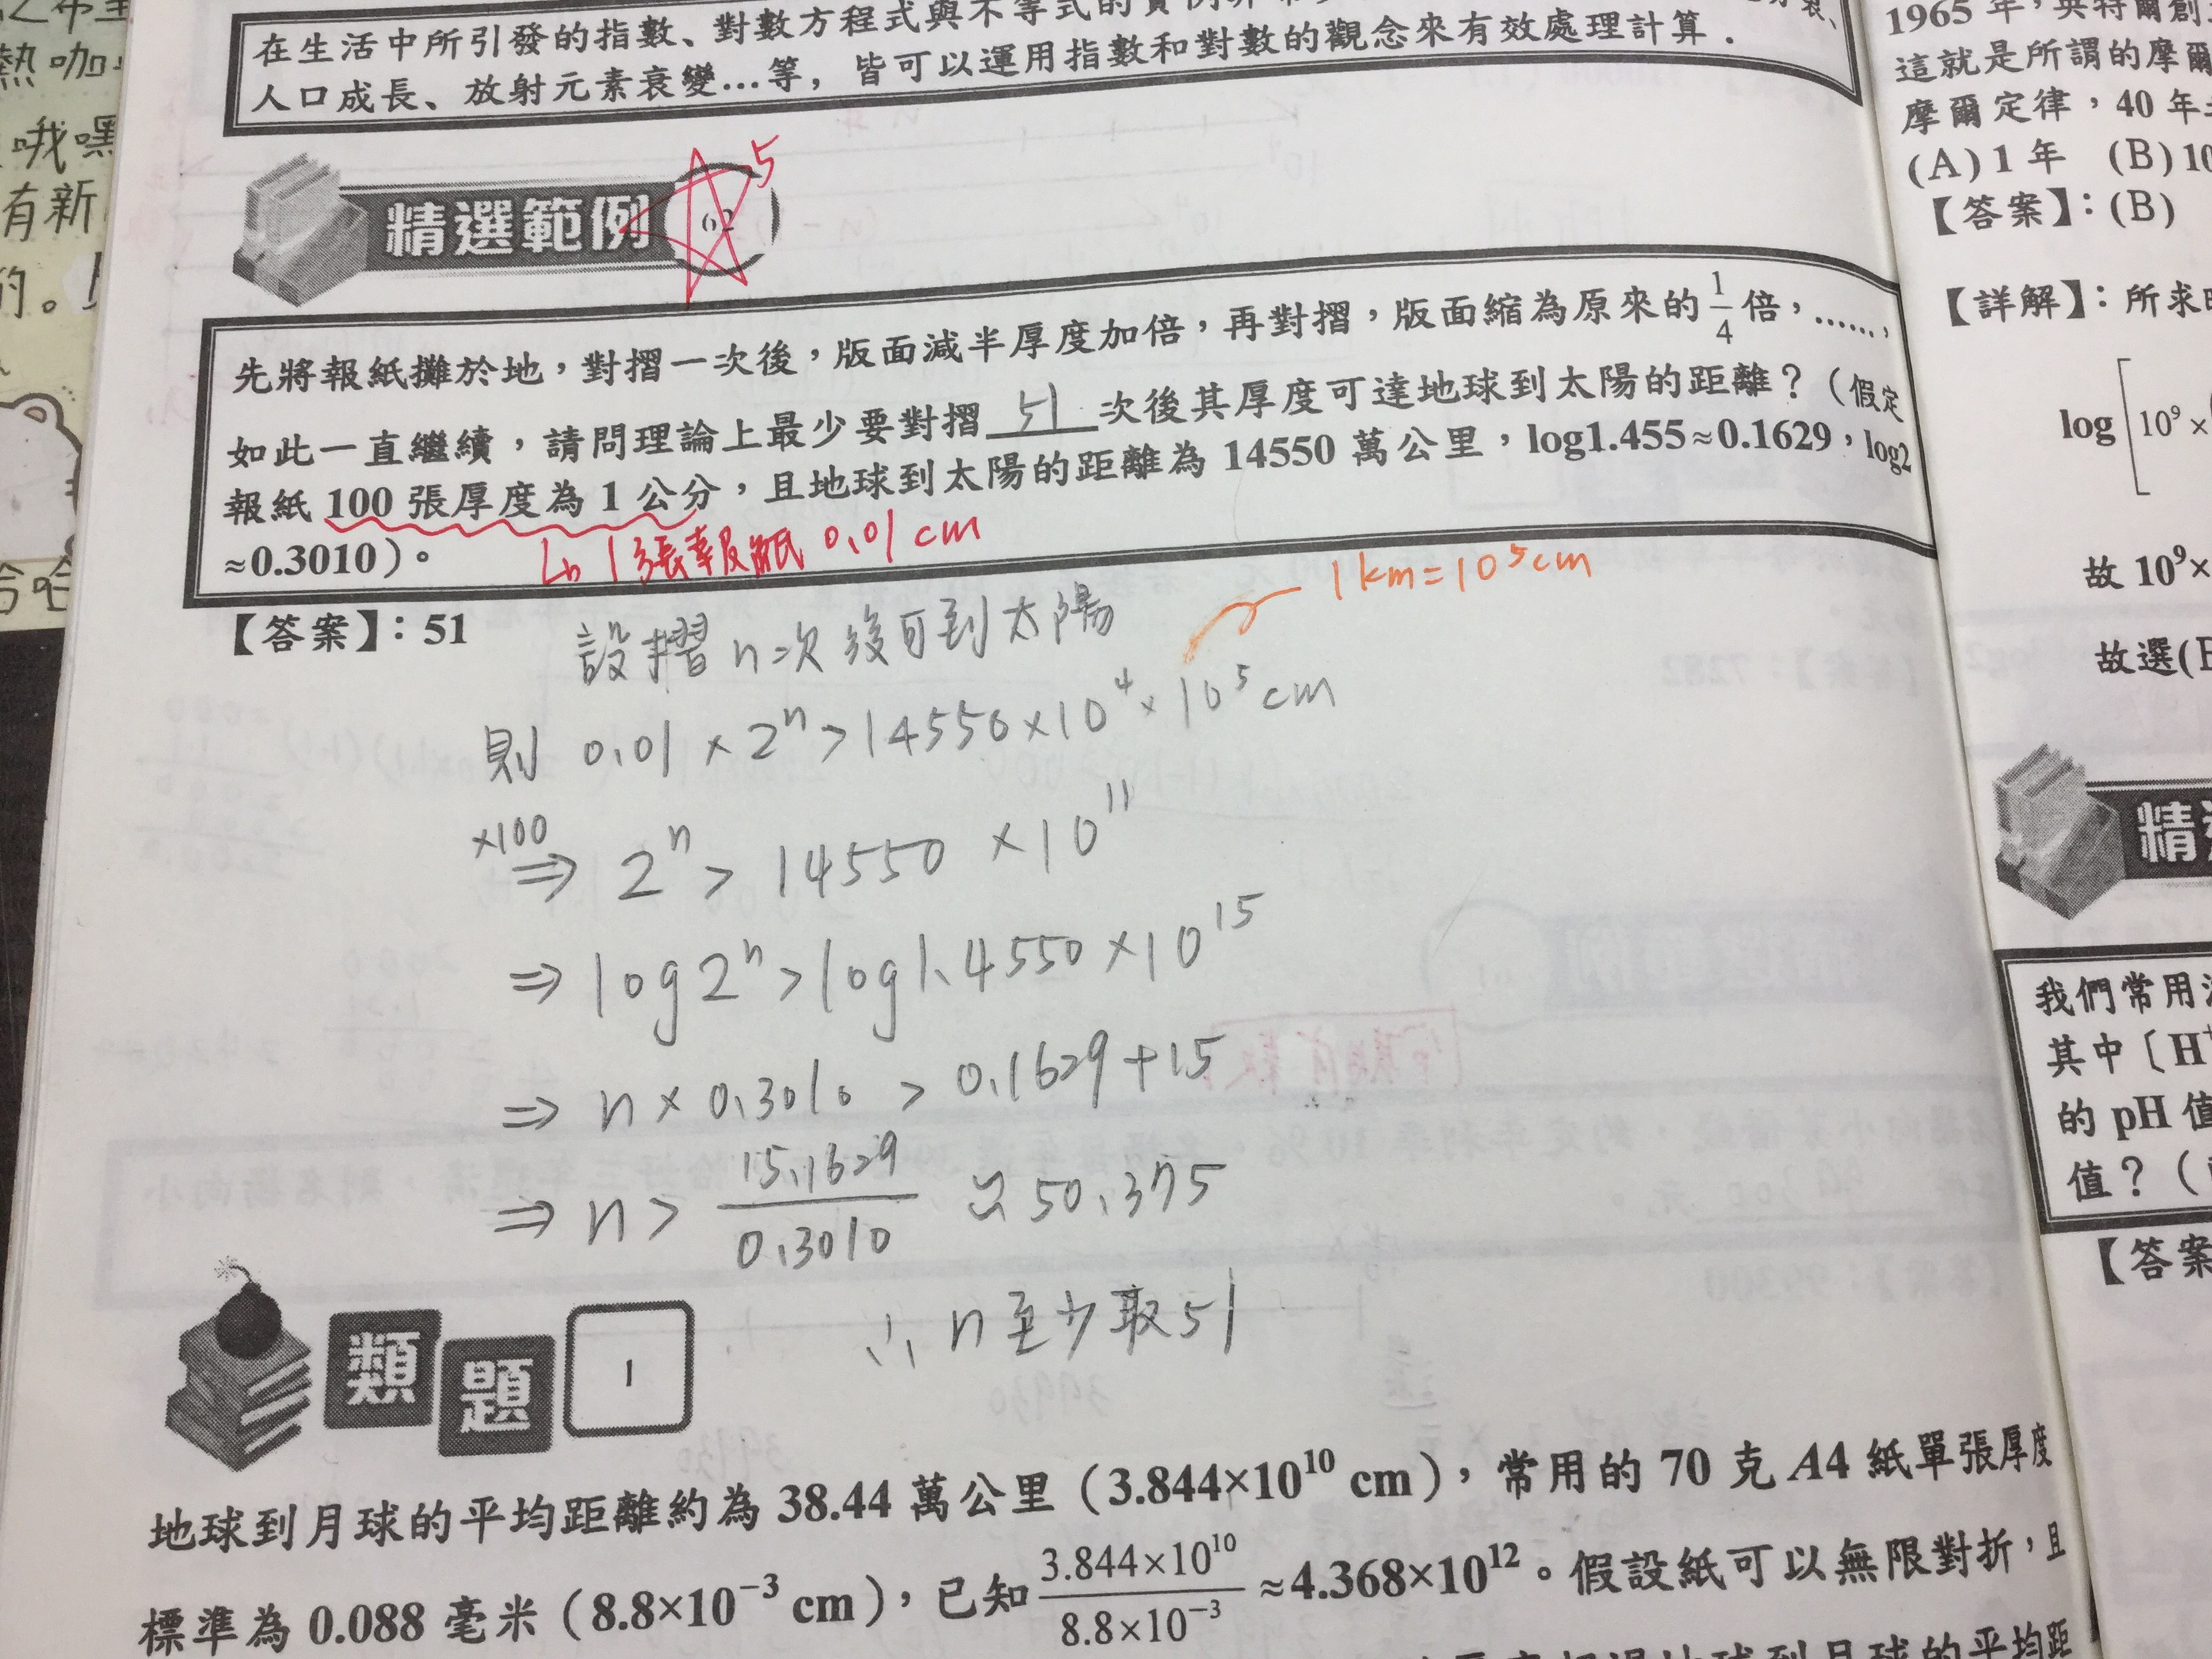 在生活中所引發的指數、對數方程式與不等式的實例
人口成長、放射元素衰變…等，皆可以運用指數和對數的觀念來有效處理計算．
精選範例 62
5
先將報紙攤於地，對摺一次後，版面減半厚度加倍，再對摺，版面縮為原來的 1/4 倍，……，
如此一直繼續，請問理論上最少要對摺 51 次後其厚度可達地球到太陽的距離？（假定
報紙 100 張厚度為 1 公分，且地球到太陽的距離為 14550 萬公里，log1.455≈0.1629，log2
≈0.3010）。
1張報紙 0.01 cm
1 km = 10⁵ cm
【答案】：51
設摺 n 次後可到太陽
則 0.01 × 2ⁿ > 14550 × 10⁴ × 10⁵ cm
×100
⇒ 2ⁿ > 14550 × 10¹¹
⇒ log 2ⁿ > log 1.4550 × 10¹⁵
⇒ n × 0.3010 > 0.1629 + 15
⇒ n > 15.1629/0.3010 ≈ 50.375
∴ n 至少取 51
類題 1
地球到月球的平均距離約為 38.44 萬公里（3.844×10¹⁰ cm），常用的 70 克 A4 紙單張厚度
標準為 0.088 毫米（8.8×10⁻³ cm），已知 3.844×10¹⁰/8.8×10⁻³ ≈4.368×10¹²。假設紙可以無限對折，且
地球到月球的平均距
熱咖
哦嘿
有新
的。
哈哈
1965 年，英特爾創
這就是所謂的摩爾
摩爾定律，40 年
(A) 1 年 (B) 10
【答案】：(B)
【詳解】：所求
log [10⁹×
故 10⁹×
故選(B
精
我們常用
其中〔H⁺
的 pH 值
值？（
【答案